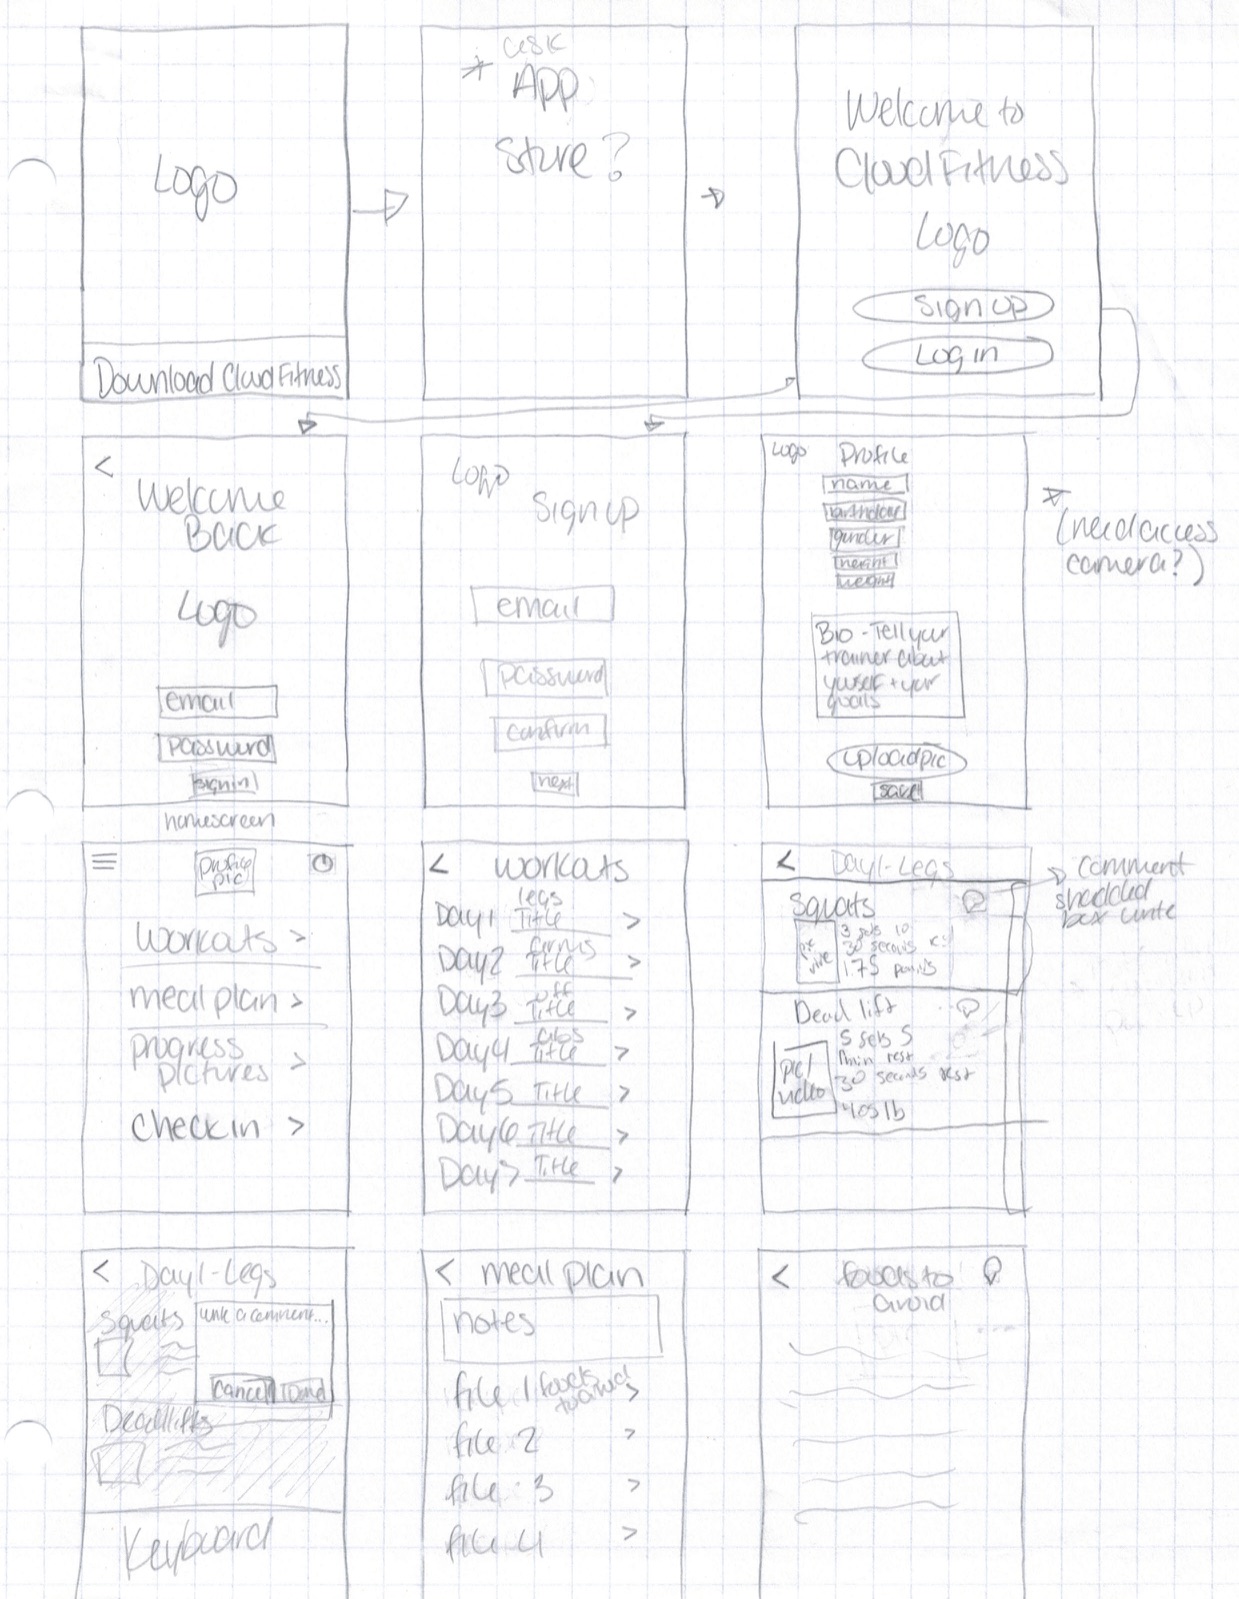 Logo
Download CloudFitness
* ask
App
Store?
Welcome to
CloudFitness
Logo
Sign up
Log in
<
Welcome
Back
Logo
email
password
sign in
homescreen
Logo
Sign up
email
password
confirm
next
Logo Profile
name
birthday
gender
height
weight
Bio - Tell your
trainer about
yourself + your
goals
upload pic
save
(need access
camera?)
profile
pic
workouts >
meal plan >
progress
pictures >
check in >
< workouts
legs
Day 1 Title >
arms
Day 2 Title >
off
Day 3 Title >
abs
Day 4 Title >
Day 5 Title >
Day 6 Title >
Day 7 Title >
< Day 1 - Legs
Squats
3 sets 10
30 seconds
175 pounds
Dead lift
5 sets 5
1 min rest
30 seconds rest
405 lb
pic/
video
comment
shaded
box write
< Day 1 - Legs
Squats
write a comment...
Cancel Send
Deadlifts
Keyboard
< meal plan
notes
file 1 foods
to avoid >
file 2 >
file 3 >
file 4 >
< foods to
avoid